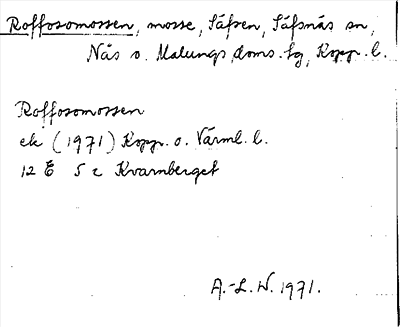 Roffosomossen, mosse, Säfsen, Säfsnäs sn,
Nås o. Malungs doms.-hg, Kopp. l.
Roffosomossen
ek (1971) Kopp. o. Värml. l.
12 E 5 c Kvarnberget
A.-L. W. 1971.